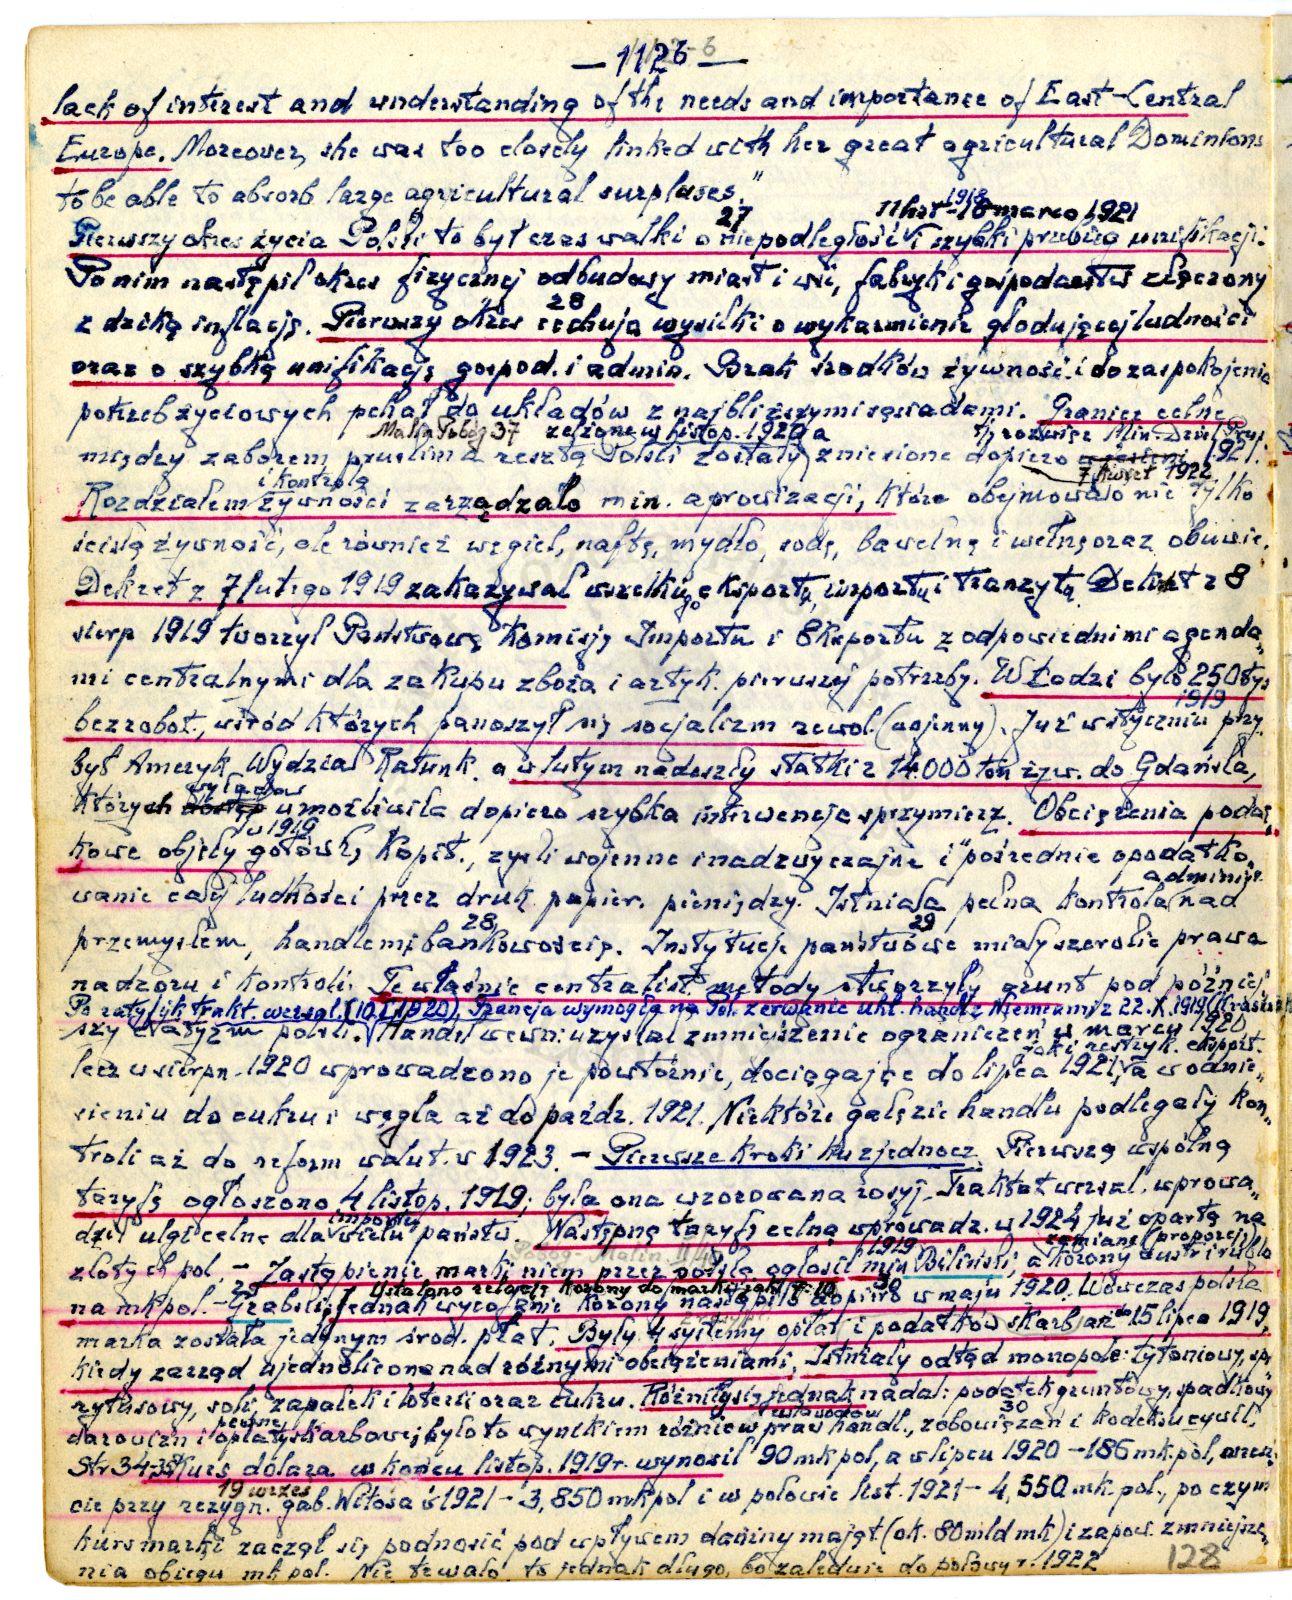 — 1126 —
lack of interest and understanding of the needs and importance of East-Central
Europe. Moreover, she was too closely linked with her great agricultural Dominions
to be able to absorb large agricultural surpluses."
27 11 list 1918 - 18 marca 1921
Pierwszy okres życia Polski to był czas walki o niepodległość i szybki przebieg unifikacji.
Po nim nastąpił okres fizycznej odbudowy miast i wsi, fabryk i gospodarstw złączony
28
z dziką inflacją. Pierwszy okres cechują wysiłki o wykarmienie głodującej ludności
oraz o szybką unifikację gospod. i admin. Brak środków żywność. i do zaspokojenia
potrzeb życiowych pchał do układów z najbliższymi sąsiadami. Granice celne
37 a
między zaborem pruskim a resztą Polski zostały zniesione dopiero w jesieni 1921.
i kontrolą 7 1922
Rozdziałem żywności zarządzało min. aprowizacji, które obejmowało nie tylko
ścisłą żywność, ale również węgiel, naftę, mydło, sodę, bawełnę i wełnę oraz obuwie.
Dekret z 7 lutego 1919 zakazywał wszelkiego eksportu, importu i tranzytu. Dekret z 8
sierp 1919 tworzył Państwową Komisję Importu i Eksportu z odpowiednimi agenda„
mi centralnymi dla zakupu zboża i artyk. pierwszej potrzeby. W Łodzi było 250 tys
1919
bezrobot., wśród których panoszył się socjalizm rewol. (wojenny). Już w styczniu przy„
był Ameryk. Wydział Ratunk. a w lutym nadeszły statki z 14.000 ton żyw. do Gdańska,
wyładow
których umożliwiła dopiero szybka interwencja sprzymierz. Obciążenia podat„
w 1919
kowe objęły gotówkę, kapit., zyski wojenne i nadzwyczajne i "pośrednie opodatko„
administr.
wanie całej ludności przez druk papier. pieniędzy. Istniała pełna kontrola nad
28 29
przemysłem, handlem i bankowością. Instytucje państwowe miały szerokie prawa
nadzoru i kontroli. Te właśnie centralist. metody stworzyły grunt pod później„
Po ratyfik trakt. wersal. (10 I 1920) Francja wymogła na Pol. zerwanie ukł. handl z Niemcami z 22. X. 1919
szy etatyzm polski. Handel wewn. uzyskał zmniejszenie ograniczeń w marcu 1920
restryk. eksport.
lecz w sierpn. 1920 wprowadzono je powtórnie, dociągając do lipca 1921, a w odnie„
sieniu do cukru i węgla aż do paźdz. 1921. Niektóre gałęzie handlu podlegały kon„
troli aż do reform walut. w 1923. — Pierwsze kroki ku zjednocz. Pierwszą wspólną
taryfę ogłoszono 4 listop. 1919; była ona wzorowana rosyj. Traktat wersal. wprowa„
importu
dził ulgi celne dla wielu państw. Następną taryfę celną wprowadz. w 1924 już opartą na
1919 zamianę (proporcj)
złotych pol. — Zastąpienie marki niem przez polską ogłosił min Biliński, a korony austr i rubla
Ustalono relację korony do marki jak 7:10 30
na mk pol. — Grabski, jednak wycofanie korony nastąpiło dopiero w maju 1920. Wówczas polska
marka została jedynym środ. płat. Były 4 systemy opłat i podatków skarb aż do 15 lipca 1919,
kiedy zarząd ujednolicono nad różnymi obciążeniami. Istniały odtąd monopole: tytoniowy, spi„
rytusowy, soli, zapałek i loterii oraz cukru. Różniły się jednak nadal: podatek gruntowy, spadkowy
pewne 30
darowizn i opłaty skarbowe; było to wynikiem różnic w praw handl., zobowiązań i kodeksu cywil.
Str 34-35 Kurs dolara w końcu listop. 1919 r. wynosił 90 mk pol, a w lipcu 1920 — 186 mk. pol, wresz„
19 wrześ
cie przy rezygn. gab. Witosa w 1921 — 3,850 mk pol i w połowie list. 1921 — 4,550 mk. pol., po czym
kurs marki zaczął się podnosić pod wpływem daniny mająt. (ok. 80 mld mk) i zapow. zmniejsze„
nia obiegu mk pol. Nie trwało to jednak długo, bo zaledwie do połowy r. 1922
128